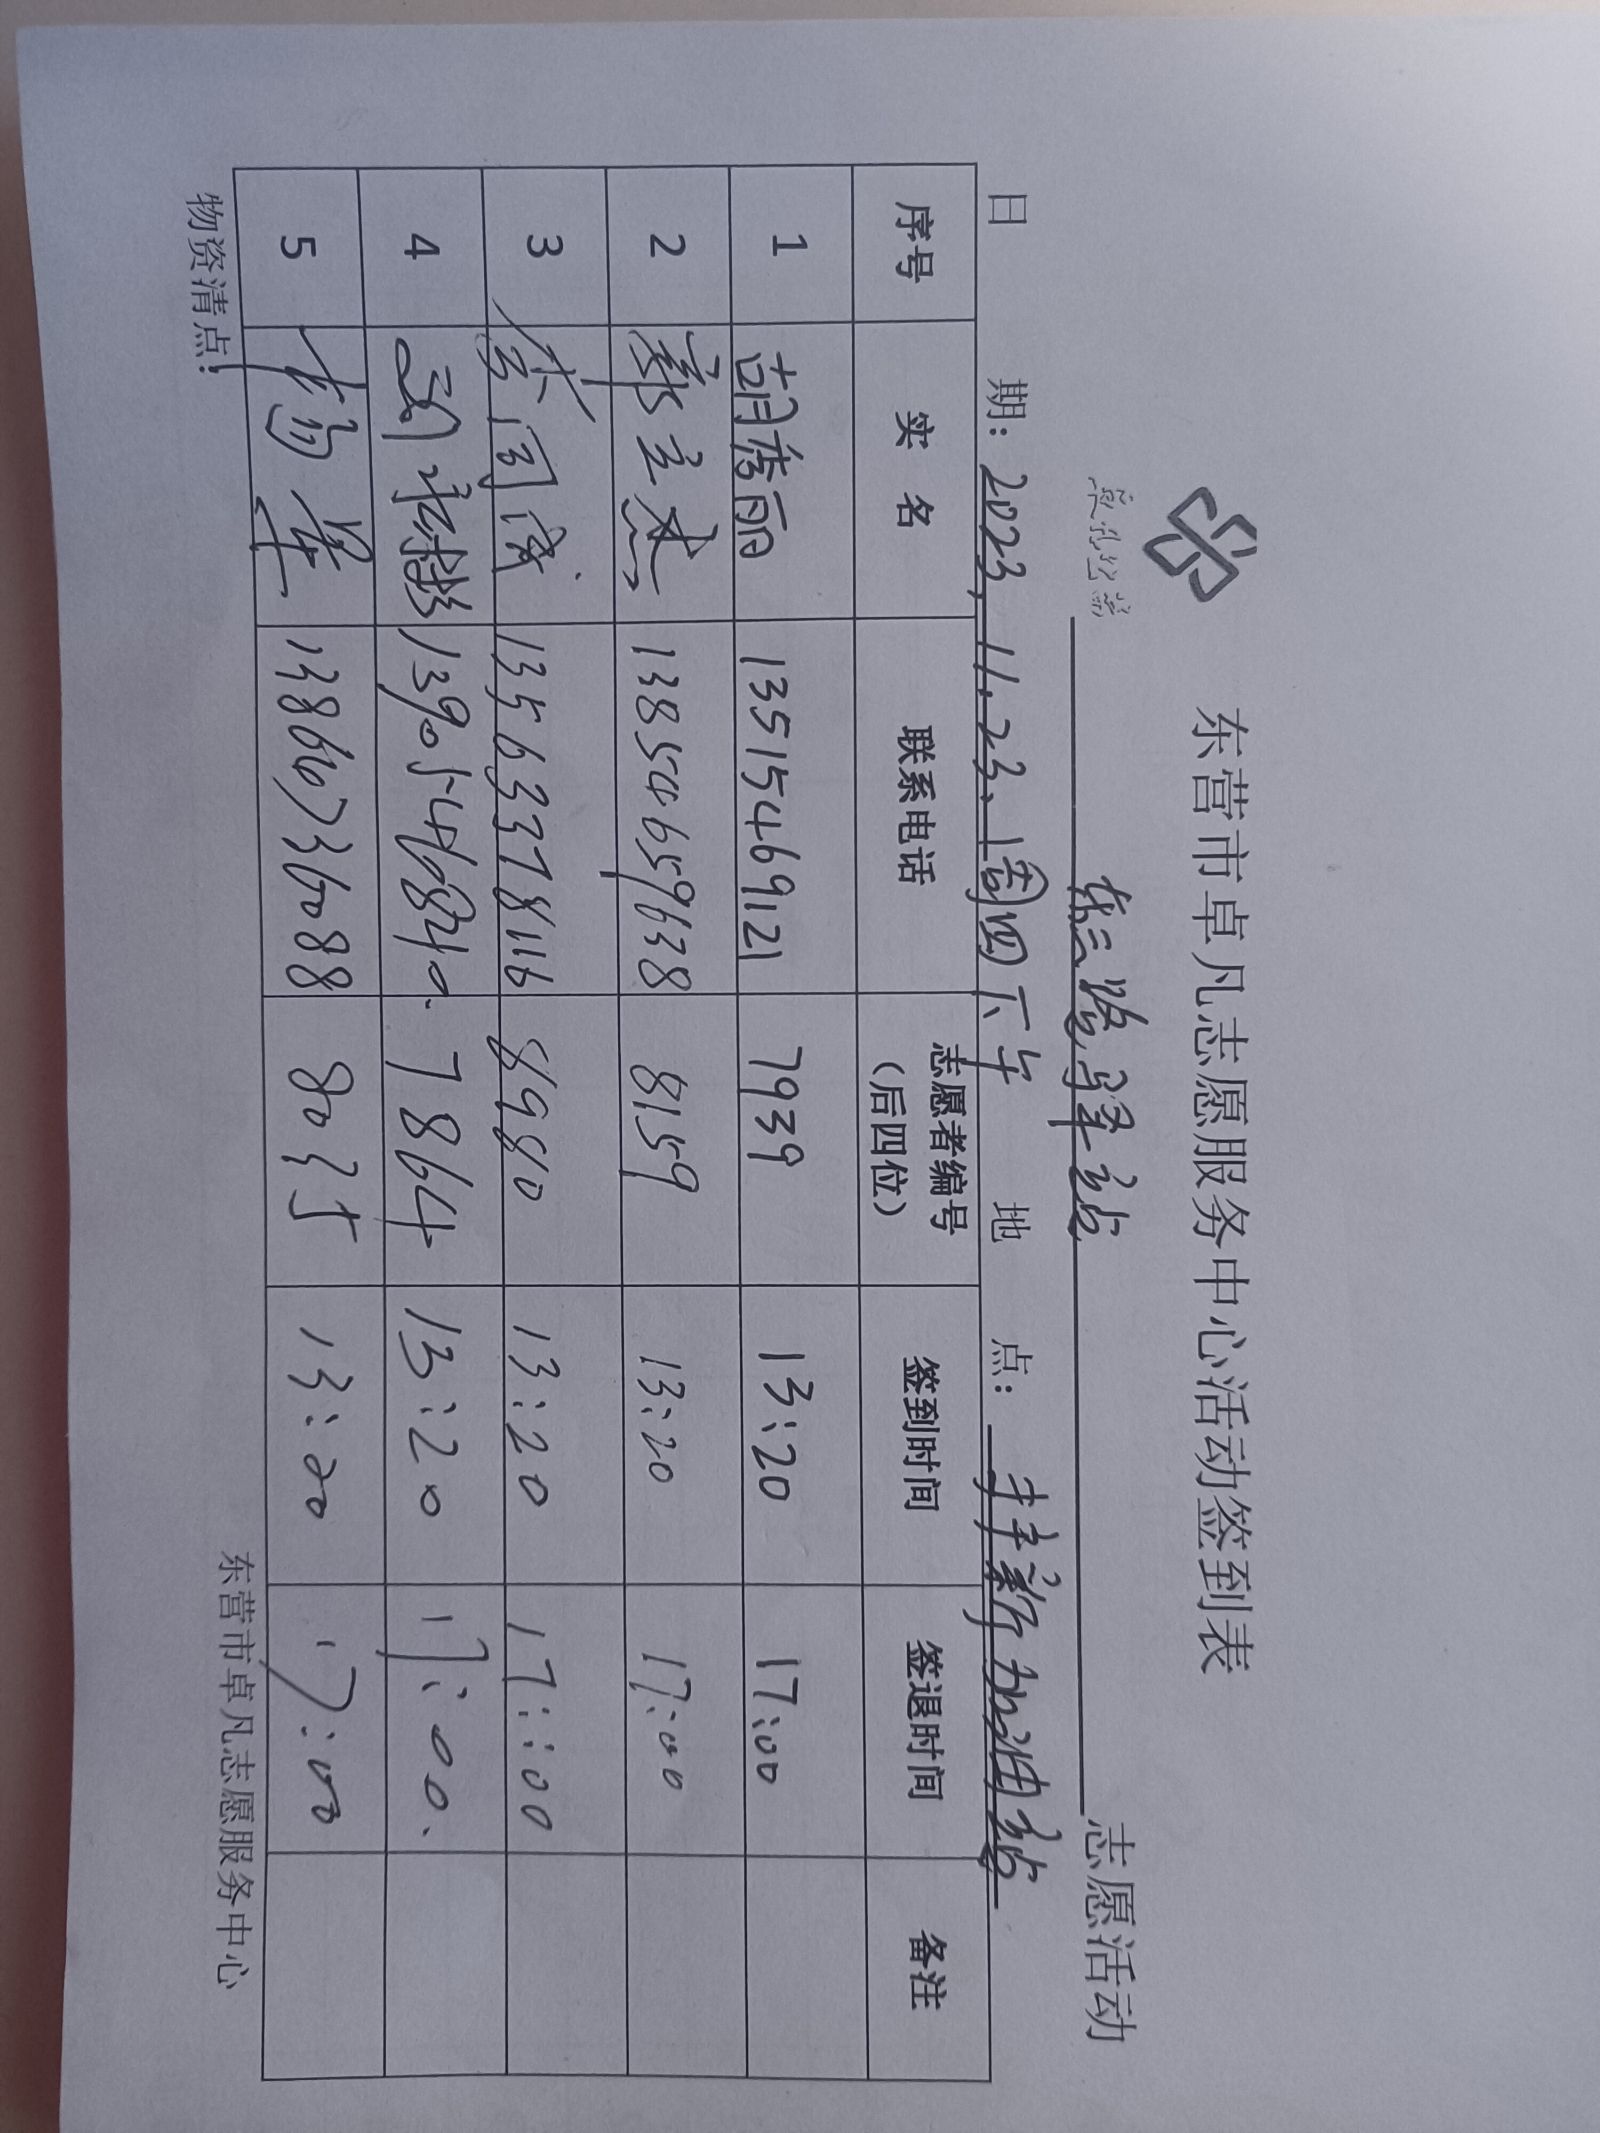 东营市卓凡志愿服务中心活动签到表
东二路驿站 志愿活动
日 期: 2023.11.23.(周四下午 地 点: 丰新加油站
序号 实 名 联系电话 志愿者编号 (后四位) 签到时间 签退时间 备注
1 胡秀丽 13515469121 7939 13:20 17:00
2 郭立志 13854659638 8159 13:20 17:00
3 13563378116 8980 13:20 17:00
4 7864 13:20 17:00.
5 杨华 13866736088 8035 13:20 17:00
物资清点! 东营市卓凡志愿服务中心